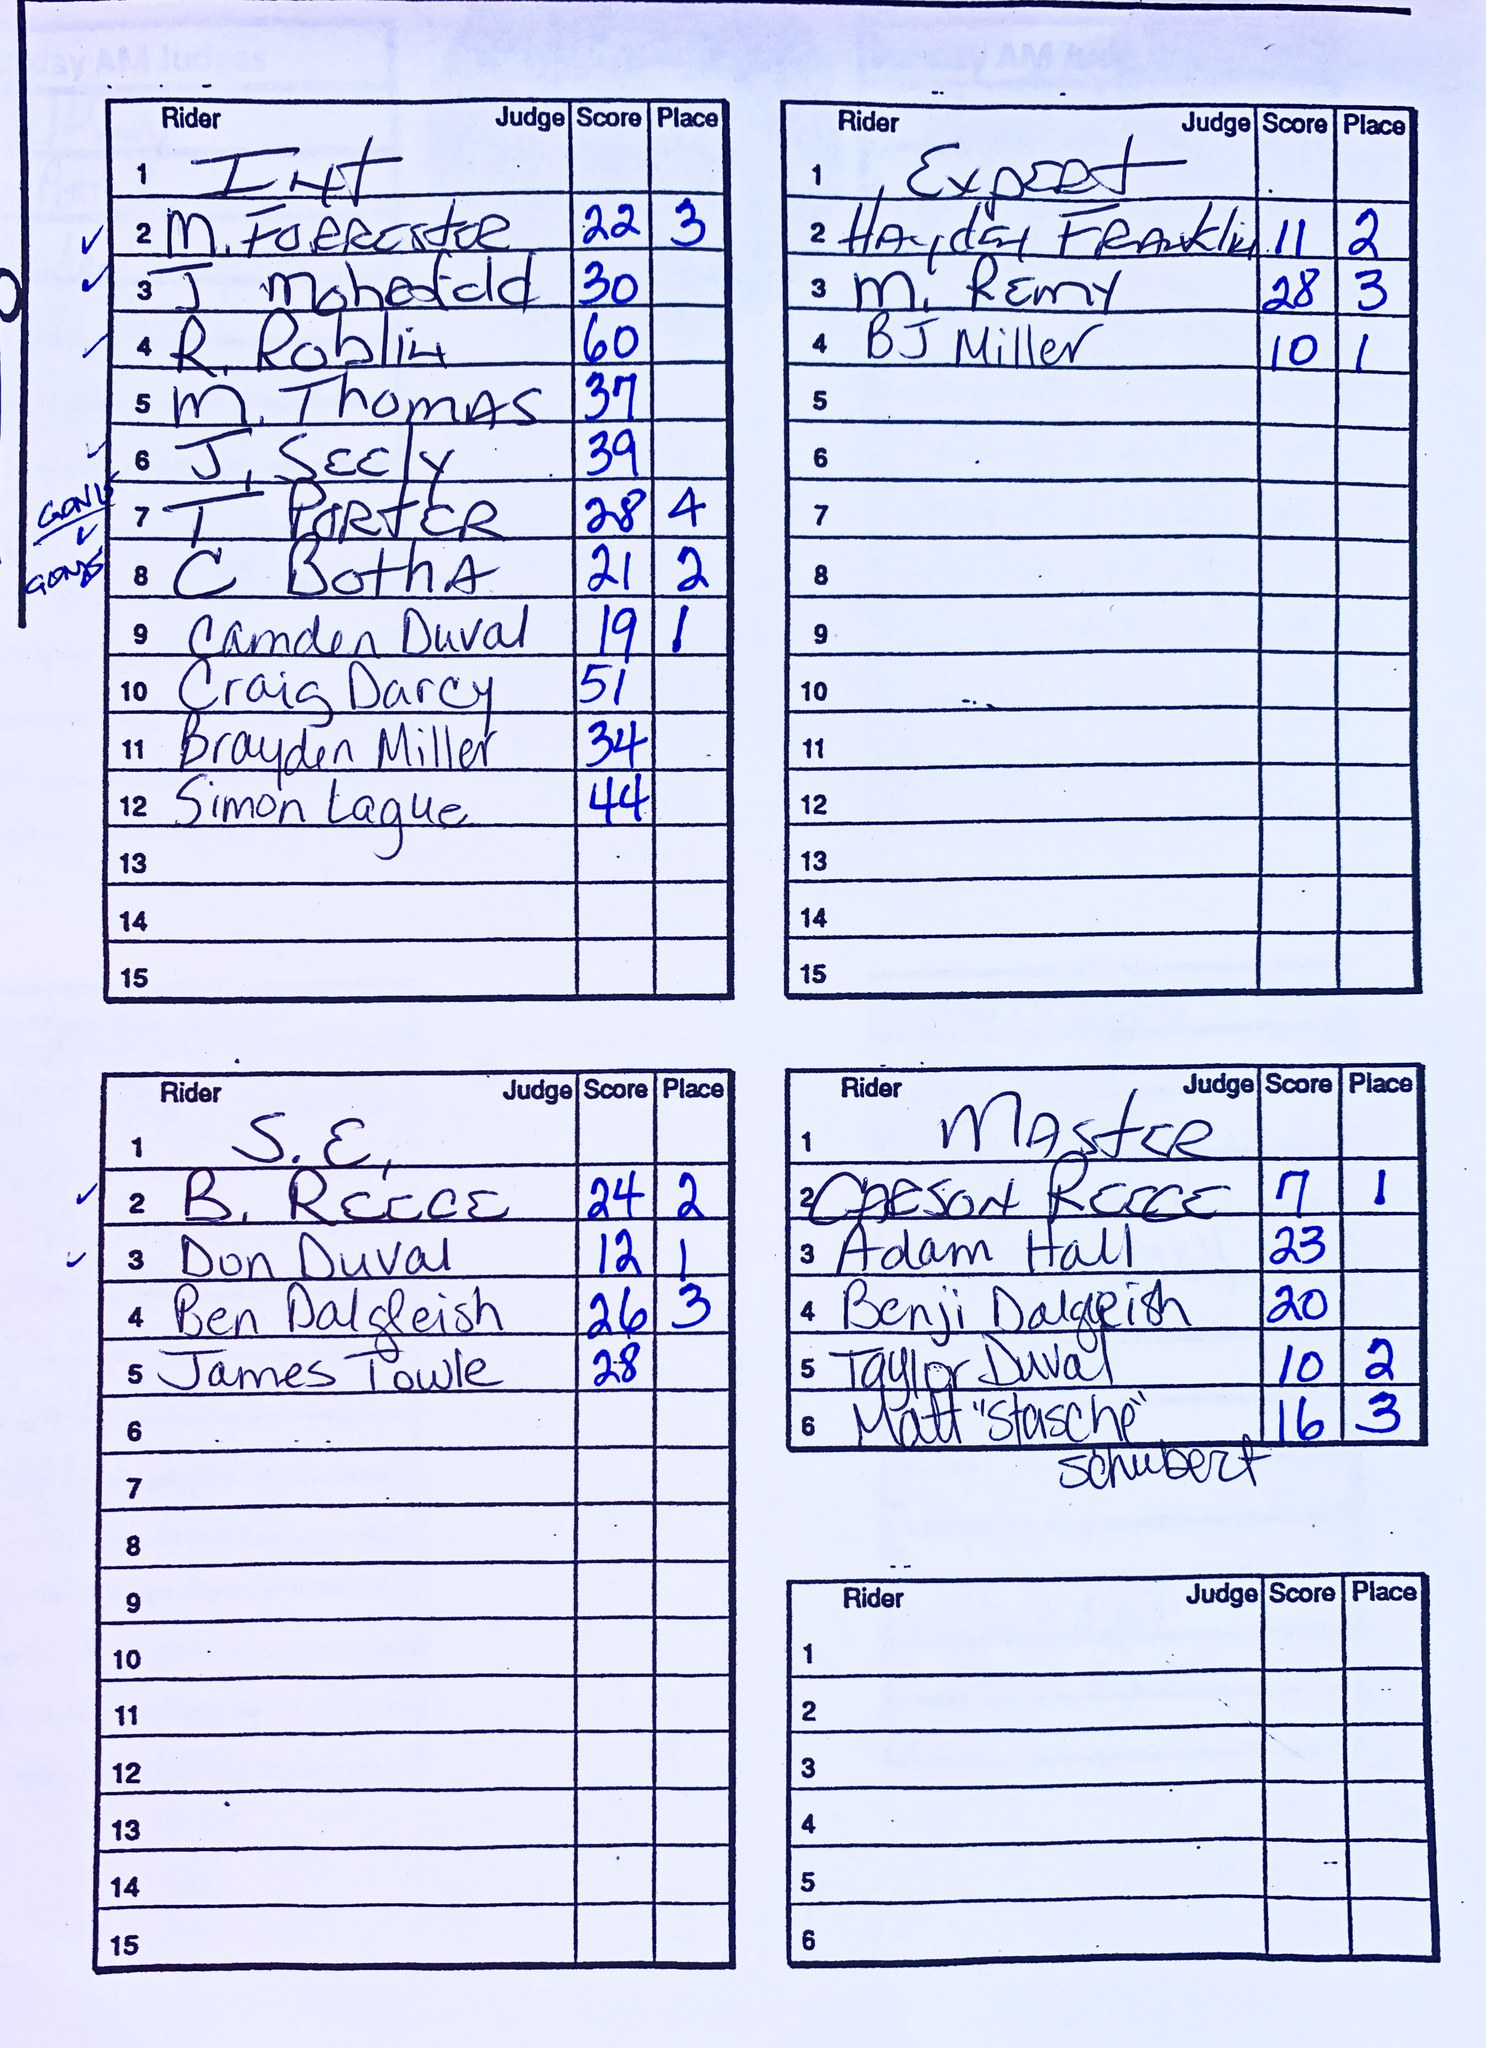 Rider Judge Score Place
1 Int
2 M. Forrester 22 3
3 J 30
4 R. Roblin 60
5 M. Thomas 37
6 J. Seely 39
GONE
7 T PORTER 28 4
GONE
8 C Botha 21 2
9 Camden Duval 19 1
10 Craig Darcy 51
11 Brayden Miller 34
12 Simon Lague 44
13
14
15
Rider Judge Score Place
1 Expert
2 Hayden Franklin 11 2
3 M. Remy 28 3
4 BJ Miller 10 1
5
6
7
8
9
10
11
12
13
14
15
Rider Judge Score Place
1 S.E.
2 B. REECE 24 2
3 Don Duval 12 1
4 Ben Dalgleish 26 3
5 James Towle 28
6
7
8
9
10
11
12
13
14
15
Rider Judge Score Place
1 Master
2 CARSON REECE 7 1
3 Adam Hall 23
4 Benji Dalgleish 20
5 Taylor Duval 10 2
6 Matt "Stasche" 16 3
Schubert
Rider Judge Score Place
1
2
3
4
5
6